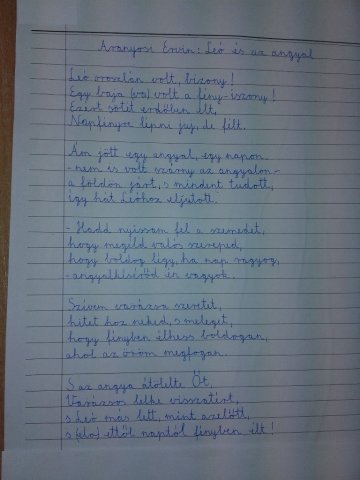 Aranyosi Ervin: Leó és az angyal
Leó oroszlán volt, bizony!
Egy baja (va) volt a fény-iszony!
Ezért sötét erdőben élt,
Napfényre lépni juj, de félt.
Ám jött egy angyal, egy napon
-nem is volt szárny az angyalon-
a földön járt, s mindent tudott,
így hát Leóhoz eljutott.
- Hadd nyissam fel a szemedet,
hogy megéld valós szereped,
hogy boldog légy, ha nap ragyog,
-angyalkísérőd én vagyok.
Szívem varázsa szeretet,
hitet hoz neked, s meleget,
hogy fényben élhess boldogan,
ahol az öröm megfogan.
S az angya átölelte Őt,
Varázsos lelke visszatért,
s Leó más lett, mint azelőtt,
s (ela) ettől naptól fényben élt!